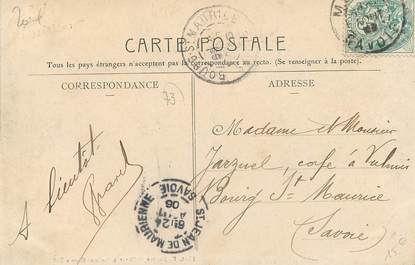 CARTE POSTALE
Tous les pays étrangers n'acceptent pas la correspondance au recto. (Se renseigner à la poste.)
CORRESPONDANCE
ADRESSE
73
A bientôt
Madame et Monsieur
café à Vulmis
Bourg St Maurice
(Savoie)
BOURG-ST-MAURICE
ST JEAN DE MAURIENNE
SAVOIE
6 24
06
SAVOIE
15